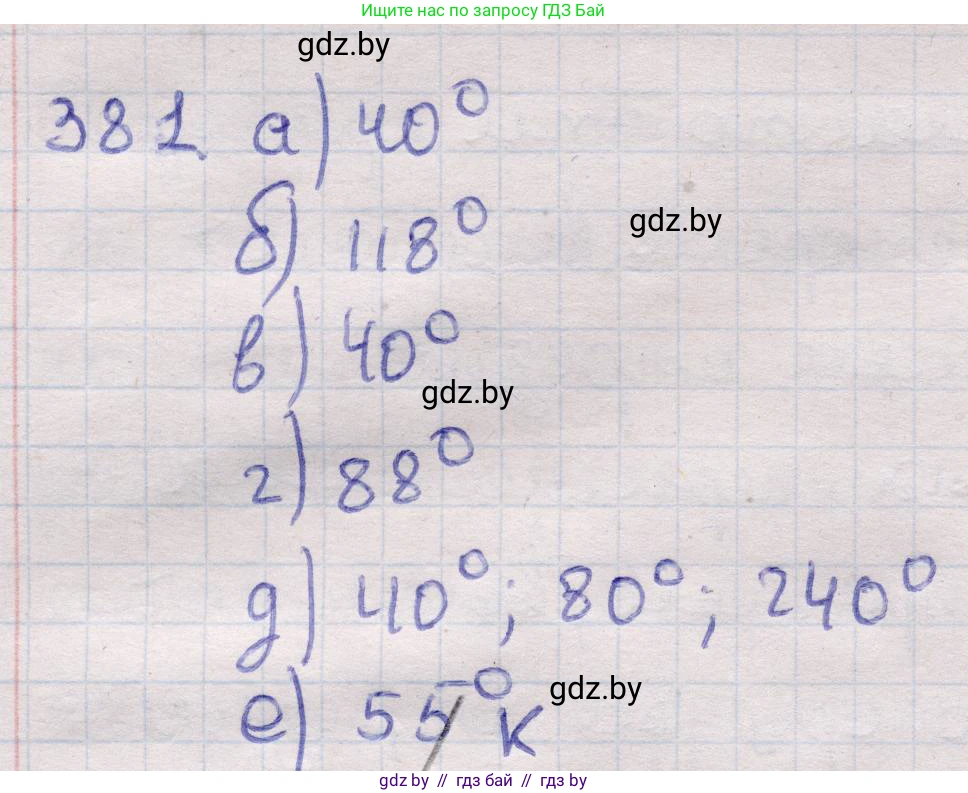 Ищите нас по запросу ГДЗ Бай
gdz.by
381 а) 40°
б) 118°
gdz.by
в) 40°
gdz.by
г) 88°
д) 40°; 80°; 240°
е) 55° К
gdz.by
gdz.by // гдз бай // гдз by